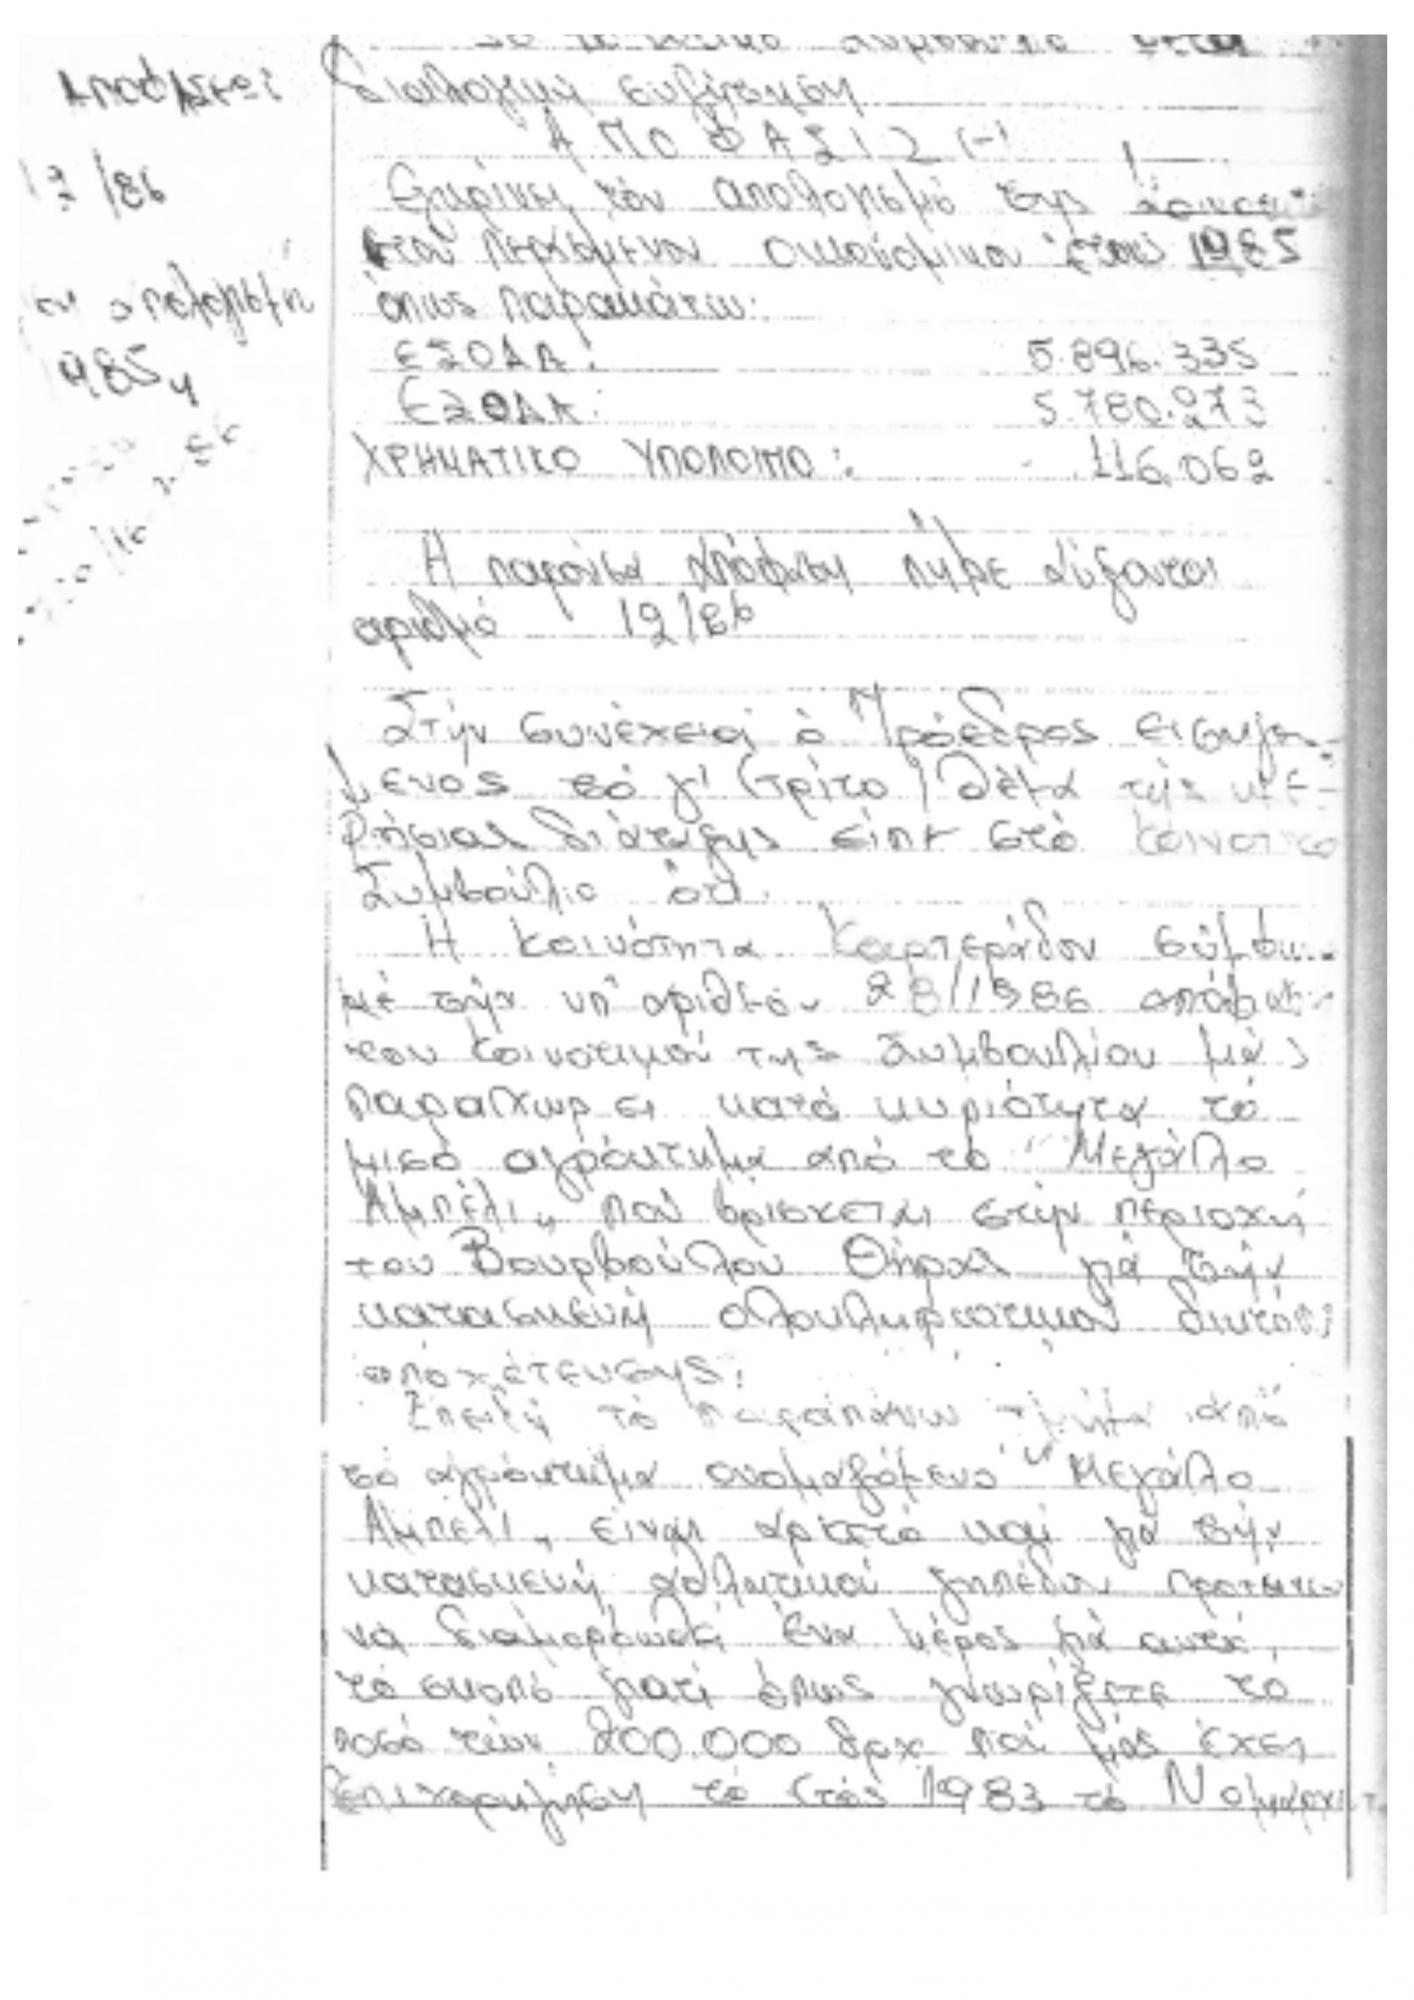 Αποφάσεως
12/86
απολογισμ
1985
Το Κοινοτικό Συμβούλιο μετά
διαλογική συζήτηση
ΑΠΟΦΑΣΙΖΕΙ
Εγκρίνει τόν απολογισμό της
του περασμένου οικονομικού έτους 1985
όπως παρακάτω:
ΕΣΟΔΑ: 5.896.335
ΕΞΟΔΑ: 5.780.273
ΧΡΗΜΑΤΙΚΟ ΥΠΟΛΟΙΠΟ: 116.062
Η παρούσα απόφαση πήρε αύξοντα
αριθμό 12/86
Στήν συνέχεια ό Πρόεδρος εισηγού-
μενος τό γ' (τρίτο) θέμα τής ημε-
ρήσιας διάταξης είπε στό Κοινοτικό
Συμβούλιο ότι.
Η Κοινότητα Καρτεράδου σύμφω.
μέ τήν υπ' αριθμόν 28/1986 απόφαση
του Κοινοτικού της Συμβουλίου μάς
παραχωρεί κατά κυριότητα τό
μισό αγρόκτημα από το "Μεγάλο
Αμπέλι" πού βρίσκεται στήν περιοχή
του Βουρβούλου Θήρας γιά τήν
κατασκευή ολοκληρωτικού δικτύου
αποχέτευσης.
Επειδή τό παραπάνω τμήμα από
τό αγρόκτημα ονομαζόμενο "Μεγάλο
Αμπέλι" είναι αρκετό καί γιά τήν
κατασκευή αθλητικού γηπέδου προτείνω
νά διαμορφωθεί ένα μέρος γιά αυτό
τό σκοπό γιατί όπως γνωρίζετε τό
ποσό τών 200.000 δρχ πού μάς έχει
επιχορηγήσει τό έτος 1983 τό Νομαρχι